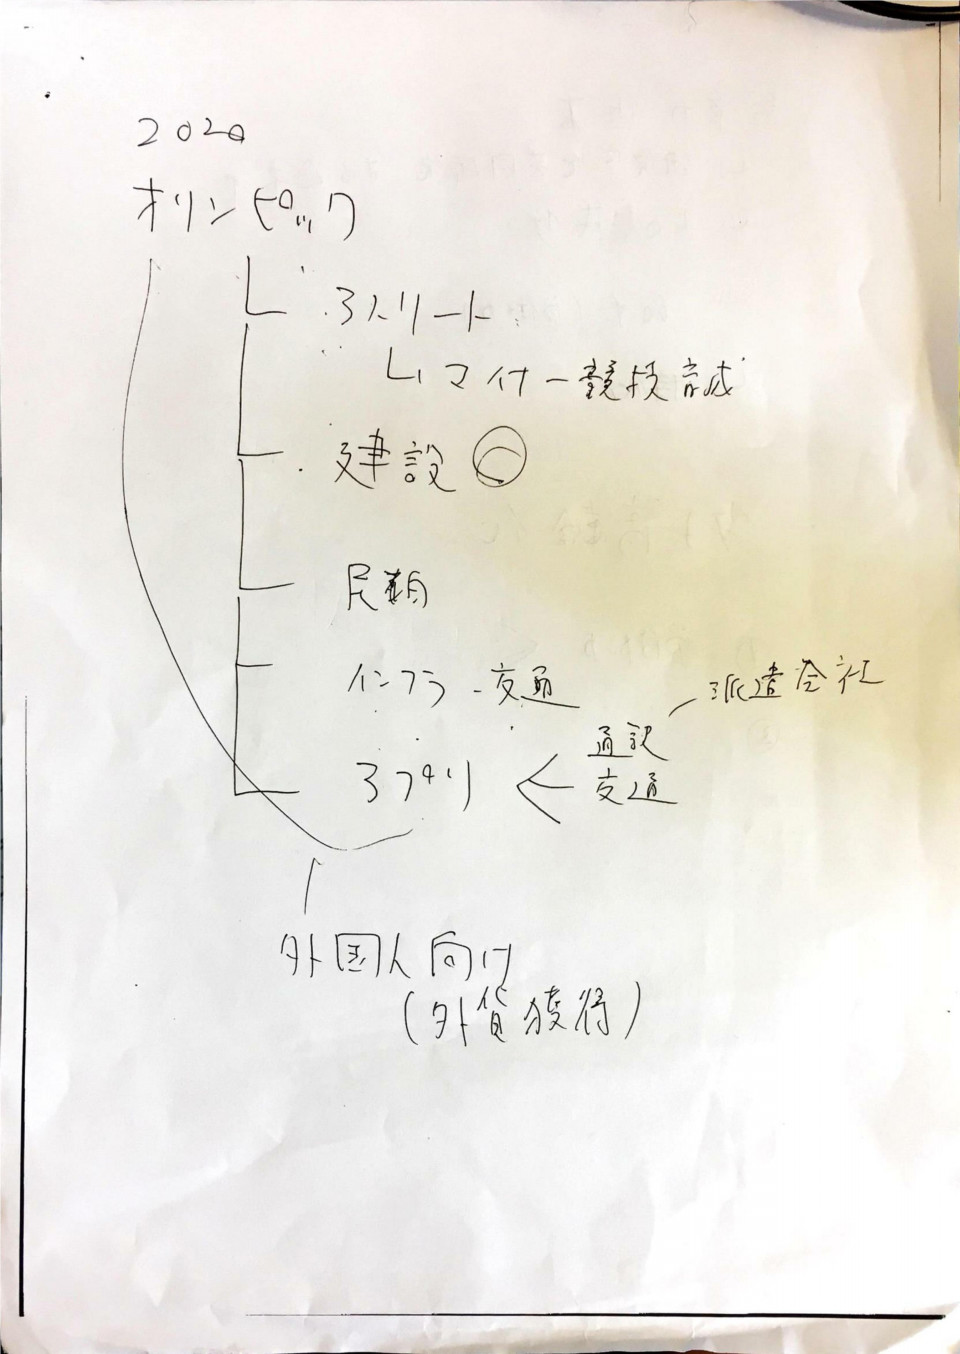 2020
オリンピック
アスリート
マイナー競技育成
建設
民泊
インフラ - 交通
派遣会社
通訳
アプリ
交通
外国人向け
(外貨獲得)